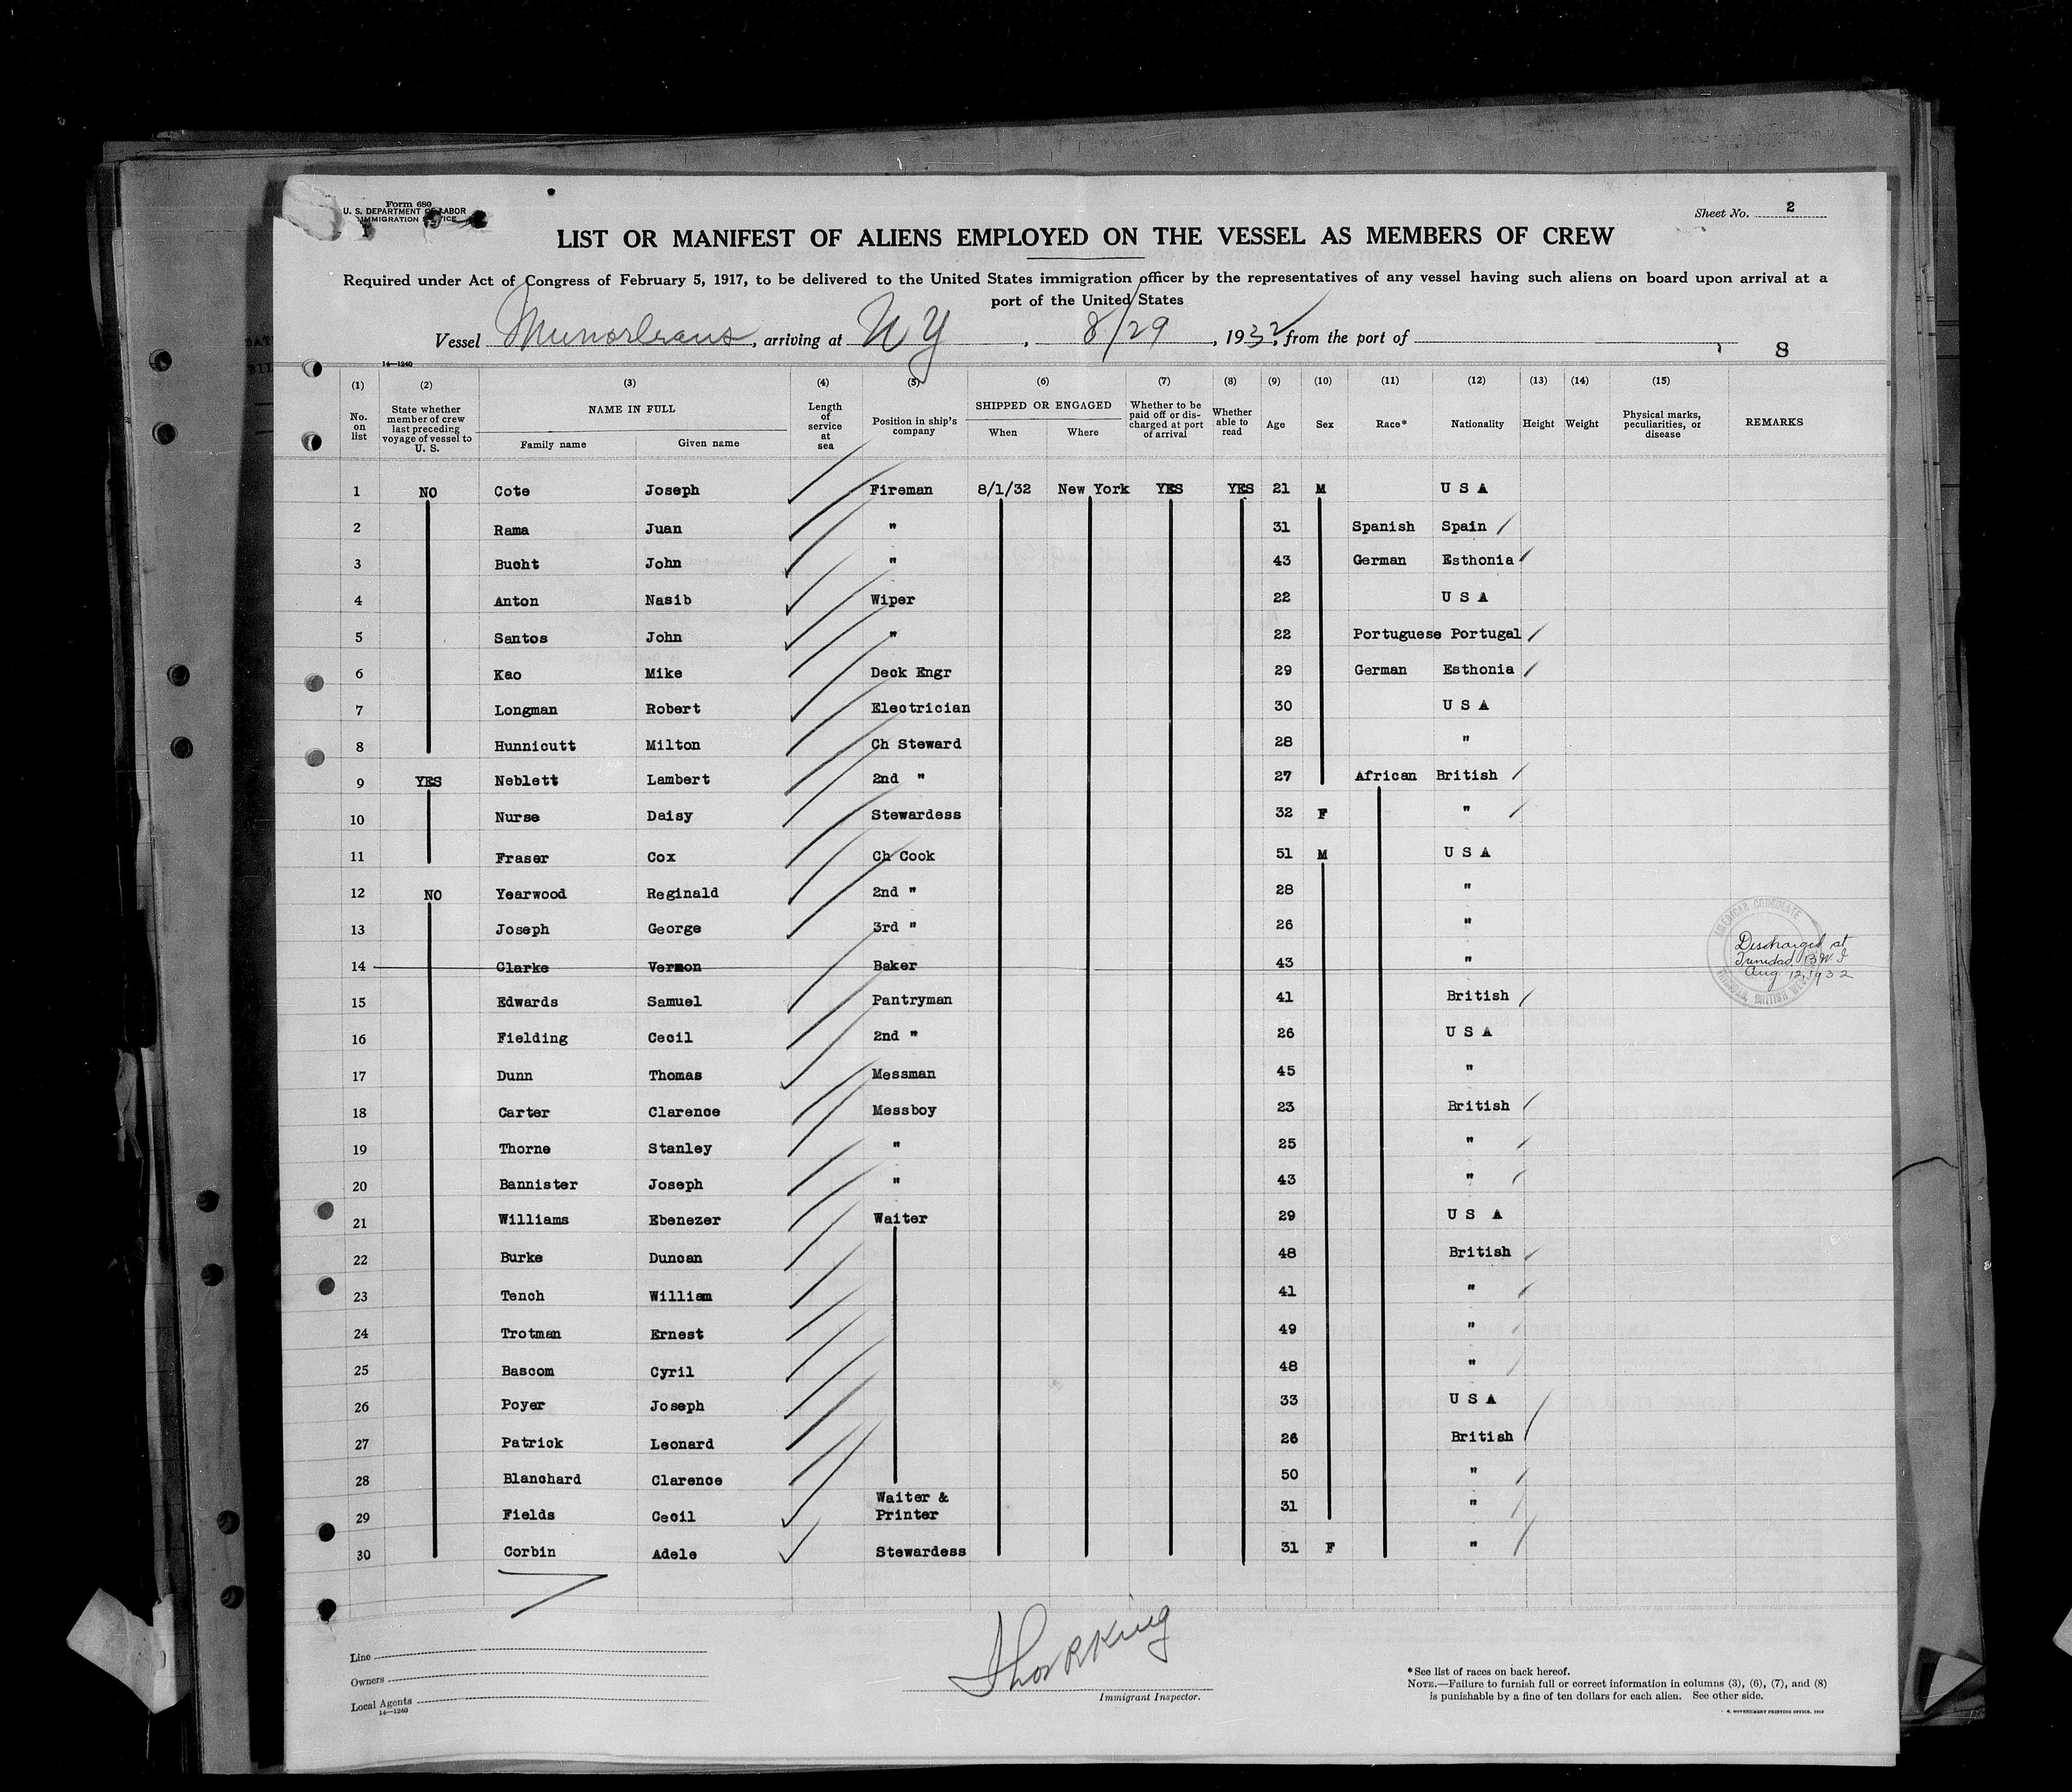 Form 680
U. S. DEPARTMENT OF LABOR
IMMIGRATION SERVICE
Sheet No. 2
LIST OR MANIFEST OF ALIENS EMPLOYED ON THE VESSEL AS MEMBERS OF CREW
Required under Act of Congress of February 5, 1917, to be delivered to the United States immigration officer by the representatives of any vessel having such aliens on board upon arrival at a
port of the United States
Vessel Munorleans, arriving at NY, 8/29, 1932, from the port of
8
14—1240
(1) (2) (3) (4) (5) (6) (7) (8) (9) (10) (11) (12) (13) (14) (15)
No. on list State whether member of crew last preceding voyage of vessel to U. S. NAME IN FULL Family name Given name Length of service at sea Position in ship's company SHIPPED OR ENGAGED When Where Whether to be paid off or discharged at port of arrival Whether able to read Age Sex Race* Nationality Height Weight Physical marks, peculiarities, or disease REMARKS
1 NO Cote Joseph Fireman 8/1/32 New York YES YES 21 M U S A
2 Rama Juan " 31 Spanish Spain
3 Bucht John " 43 German Esthonia
4 Anton Nasib Wiper 22 U S A
5 Santos John " 22 Portuguese Portugal
6 Kao Mike Deck Engr 29 German Esthonia
7 Longman Robert Electrician 30 U S A
8 Hunnicutt Milton Ch Steward 28 "
9 YES Neblett Lambert 2nd " 27 African British
10 Nurse Daisy Stewardess 32 F "
11 Fraser Cox Ch Cook 51 M U S A
12 NO Yearwood Reginald 2nd " 28 "
13 Joseph George 3rd " 26 "
14 Clarke Vernon Baker 43 " Discharged at Trinidad, B.W.I Aug 12, 1932
15 Edwards Samuel Pantryman 41 British
16 Fielding Cecil 2nd " 26 U S A
17 Dunn Thomas Messman 45 "
18 Carter Clarence Messboy 23 British
19 Thorne Stanley " 25 "
20 Bannister Joseph " 43 "
21 Williams Ebenezer Waiter 29 U S A
22 Burke Duncan 48 British
23 Tench William 41 "
24 Trotman Ernest 49 "
25 Bascom Cyril 48 "
26 Poyer Joseph 33 U S A
27 Patrick Leonard 26 British
28 Blanchard Clarence 50 "
29 Fields Cecil Waiter & Printer 31 "
30 Corbin Adele Stewardess 31 F "
AMERICAN CONSULATE
TRINIDAD, BRITISH WEST
Line
Owners
Local Agents
14—1240
Thor R King
Immigrant Inspector.
*See list of races on back hereof.
NOTE.—Failure to furnish full or correct information in columns (3), (6), (7), and (8)
is punishable by a fine of ten dollars for each alien. See other side.
GOVERNMENT PRINTING OFFICE